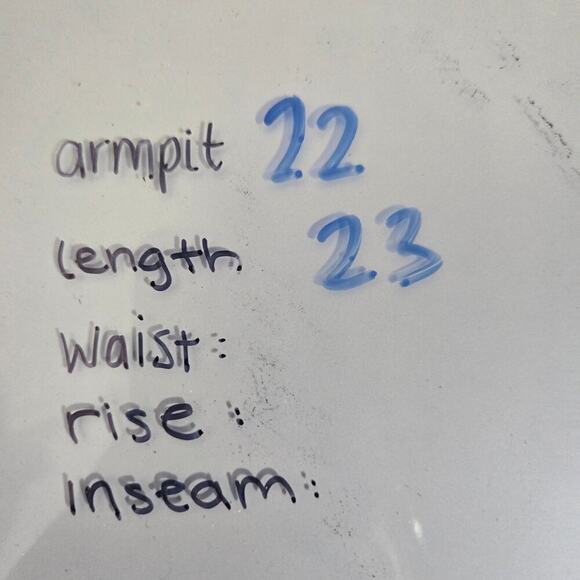 armpit 22
length 23
Waist:
rise:
inseam: